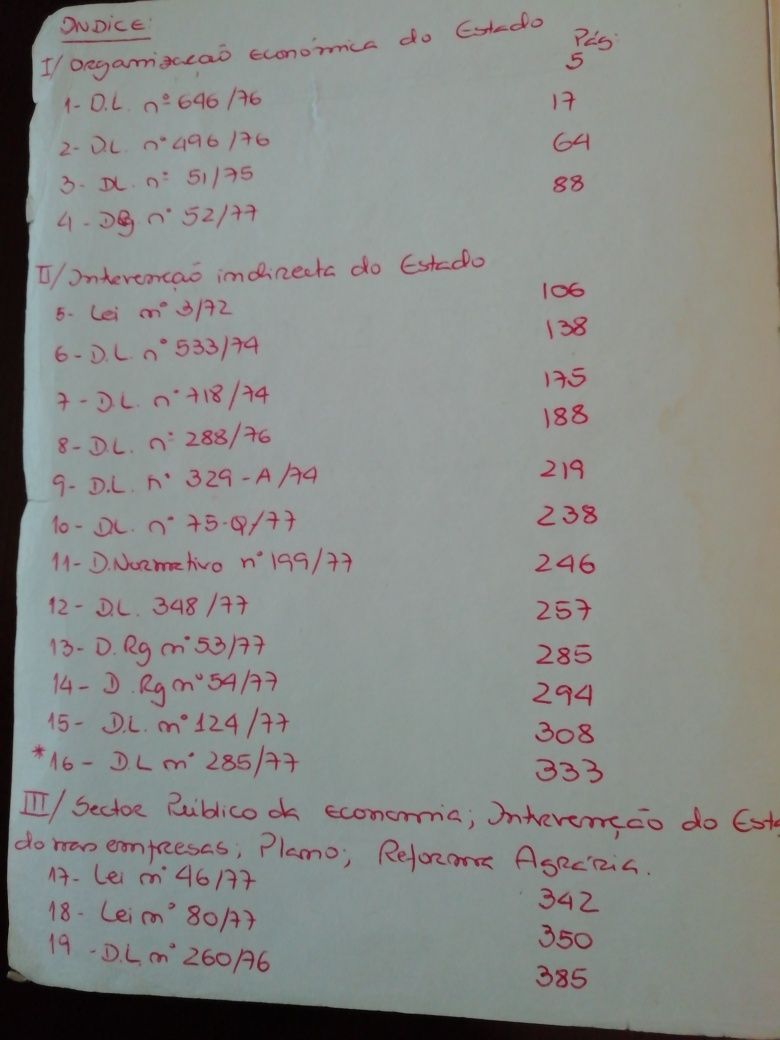 INDICE:
I/ Organização económica do Estado Pág:
5
1- D.L. nº 646/76 17
2- D.L. nº 496/76 64
3- DL. nº 51/75 88
4- DRg nº 52/77
II/ Intervenção indirecta do Estado
5- Lei nº 3/72 106
6- D.L. nº 533/74 138
7- D.L. nº 718/74 175
8- D.L. nº 288/76 188
9- D.L. nº 329-A/74 219
10- DL. nº 75-Q/77 238
11- D.Normativo nº 199/77 246
12- D.L. 348/77 257
13- D. Rg nº 53/77 285
14- D. Rg nº 54/77 294
15- D.L. nº 124/77 308
*16- D.L nº 285/77 333
III/ Sector Público da economia; Intervenção do Esta
do nas empresas; Plano; Reforma Agrária.
17- Lei nº 46/77 342
18- Lei nº 80/77 350
19 -D.L. nº 260/76 385